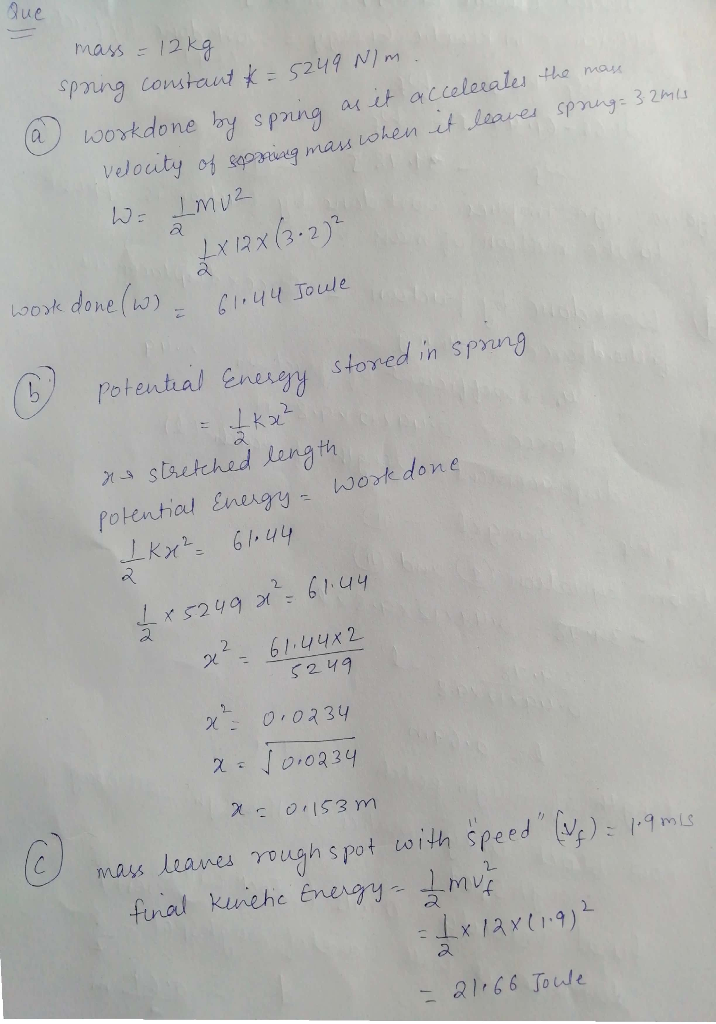 Que
mass = 12kg
spring constant k = 5249 N/m.
(a) workdone by spring as it accelerates the mass
velocity of mass when it leaves spring = 3.2m/s
W = 1/2 mv²
1/2 x 12 x (3.2)²
work done (w) = 61.44 Joule
(b) potential Energy stored in spring
= 1/2 kx²
x → stretched length
potential Energy = workdone
1/2 Kx² = 61.44
1/2 x 5249 x² = 61.44
x² = 61.44x2/5249
x² = 0.0234
x = √0.0234
x = 0.153 m
(c) mass leaves rough spot with "speed" (Vf) = 1.9 m/s
final Kinetic Energy = 1/2 mvf²
= 1/2 x 12 x (1.9)²
= 21.66 Joule